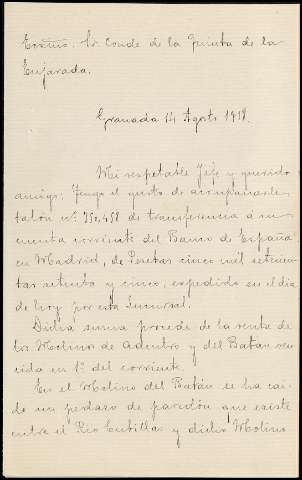 Excmo. Sr. Conde de la Quinta de la
Enjarada.
Granada 14 Agosto 1918.
Mi respetable Jefe y querido
amigo: Tengo el gusto de acompañarle
talón nº. 350,458 de transferencia á su
cuenta corriente del Banco de España
en Madrid, de Pesetas cinco mil setecien-
tas setenta y cinco, expedido en el dia
de hoy por esta Sucursal.
Dicha suma procede de la renta de
los Molinos de Adentro y del Batán ven-
cida en 1º. del corriente.
En el Molino del Batán se ha cai-
do un pedazo de paredón que existe
entre el Rio Cubillas y dicho Molino